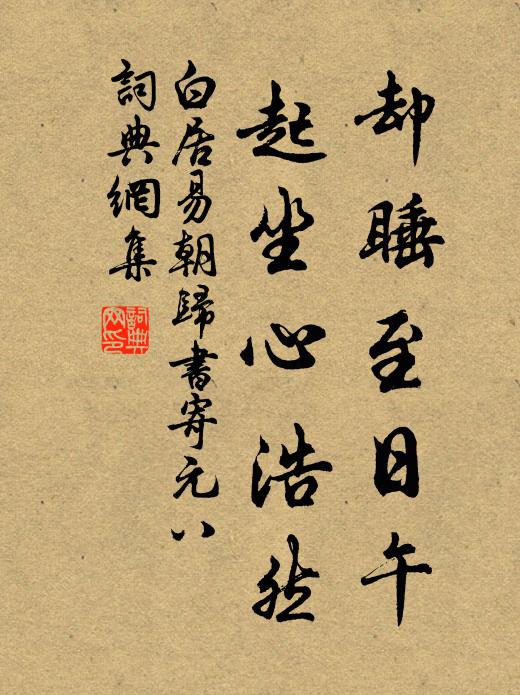 却睡至日午
起坐心浩然
白居易朝歸書寄元八
詞典網集
詞典网印